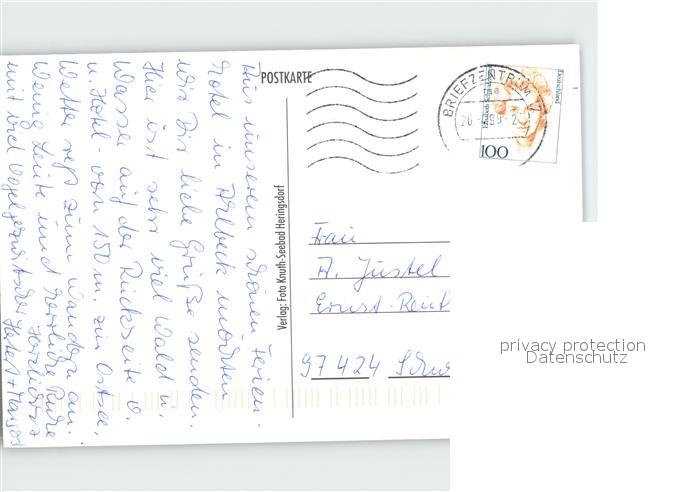 POSTKARTE
Aus unserem schönen Ferien-
hotel in Ahlbeck möchten
wir Dir liebe Grüße senden.
Hier ist sehr viel Wald u.
Wasser auf der Rückseite v.
u. Hotel - von 150 m. zur Ostsee,
Wetter regt zum Wandern an.
Wenig Leute und herrliche Ruhe
mit viel Vogelgezwitscher Herzlichst
Verlag: Foto Knuth-Seebad Heringsdorf
BRIEFZENTRUM 17
Deutschland
100
Frau
A. Jüstel
Ernst-Reut
97424 Schw
privacy protection
Datenschutz